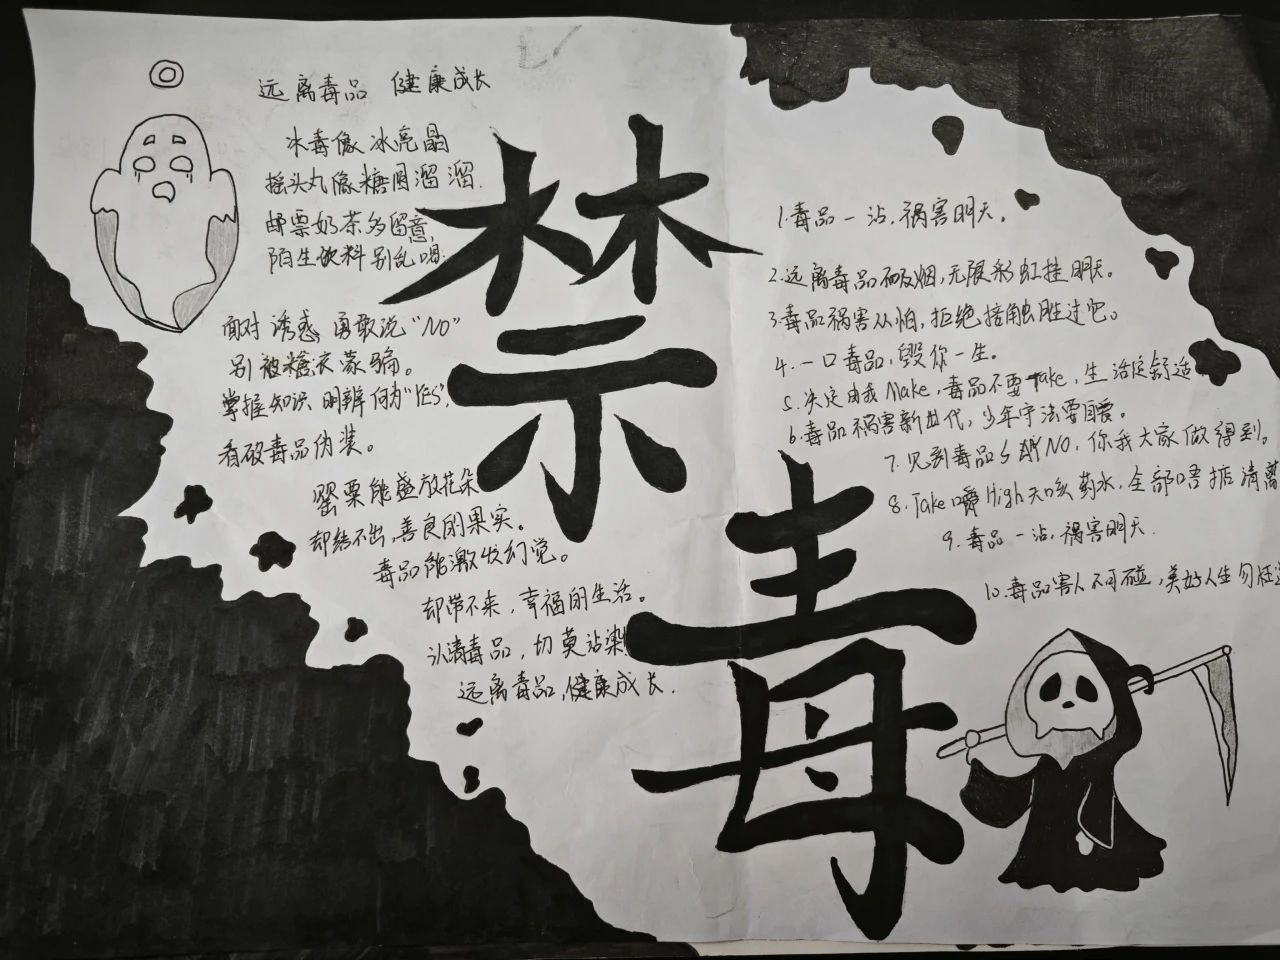 远离毒品 健康成长
冰毒像冰亮晶
摇头丸像糖圆溜溜.
邮票奶茶多留意,
陌生饮料别乱喝.
面对诱惑,勇敢说"NO"
别被糖衣蒙骗。
掌握知识 明辨何为"YES",
看破毒品伪装。
罂粟能盛放花朵
却结不出,善良的果实。
毒品能激发幻觉。
却带不来,幸福的生活。
认清毒品,切莫沾染
远离毒品,健康成长.
禁
毒
1.毒品一沾,祸害明天。
2.远离毒品和吸烟,无限彩虹挂明天。
3.毒品祸害从怕,拒绝接触胜过它。
4.一口毒品,毁你一生。
5.决定由我Make,毒品不要take,生活定舒适
6.毒品祸害新世代,少年守法要自爱。
7.见到毒品Say NO,你我大家做得到。
8.Take嚼High天咳药水,全部唔掂清离
9.毒品一沾,祸害明天.
10.毒品害人不可碰,美好人生勿任